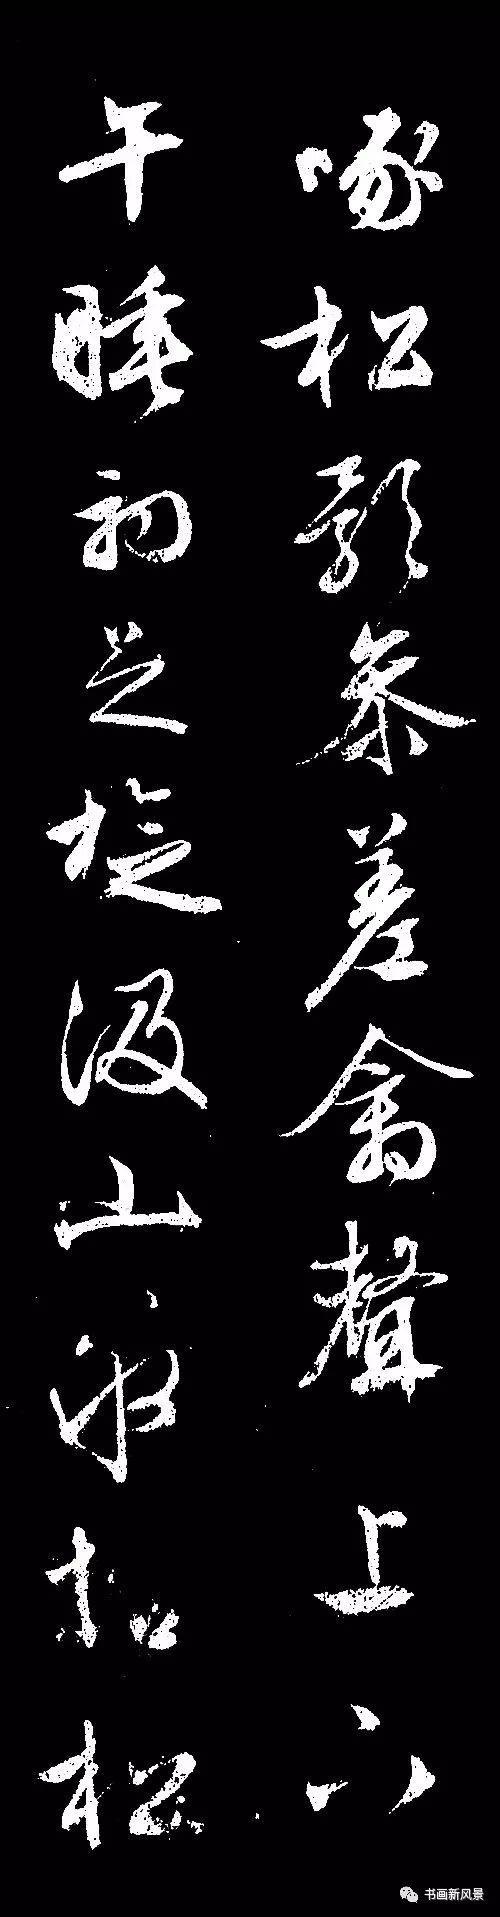 啄松影參差禽聲上下
午睡初足旋汲山泉拾松
书画新风景